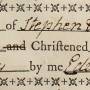 of Stephen
and Chriftened
by me Ed